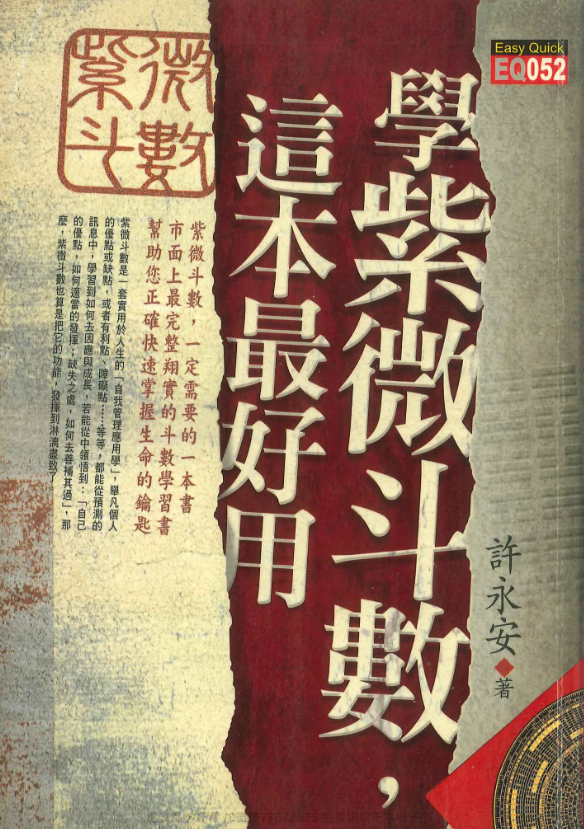 Easy Quick
EQ052
學紫微斗數，
這本最好用
許永安◆著
紫微
斗數
紫微斗數，一定需要的一本書
市面上最完整翔實的斗數學習書
幫助您正確快速掌握生命的鑰匙
紫微斗數是一套實用於人生的「自我管理應用學」，舉凡個人
的優點或缺點，或者有利點、障礙點……等等，都能從預測的
訊息中，學習到如何去因應與成長，若能從中領悟到：「自己
的優點，如何適當的發揮；缺失之處，如何去善補其過」，那
麼，紫微斗數也算是把它的功能，發揮到淋漓盡致了。